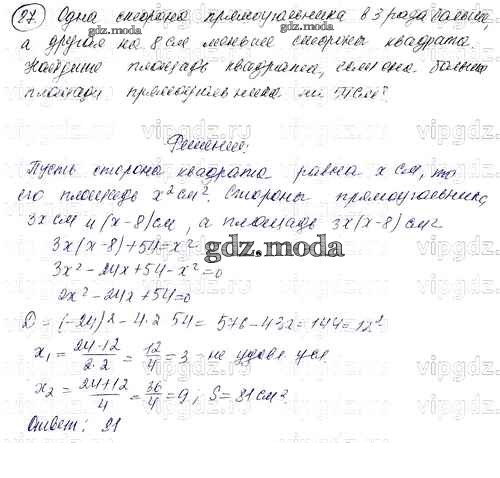 27) Одна сторона прямоугольника в 3 раза больше,
а другая на 8 см меньше стороны квадрата.
Найдите площадь квадрата, если она больше
площади прямоугольника на 54 см².
Решение:
Пусть сторона квадрата равна x см, то
его площадь x² см². Стороны прямоугольника
3x см и (x-8) см, а площадь 3x(x-8) см²
3x(x-8)+54=x²
3x²-24x+54-x²=0
2x²-24x+54=0
D=(-24)²-4·2·54=576-432=144=12²
x₁=(24-12)/(2·2)=12/4=3 - не удовл. усл.
x₂=(24+12)/4=36/4=9; S=81 см²
Ответ: 81
gdz.moda